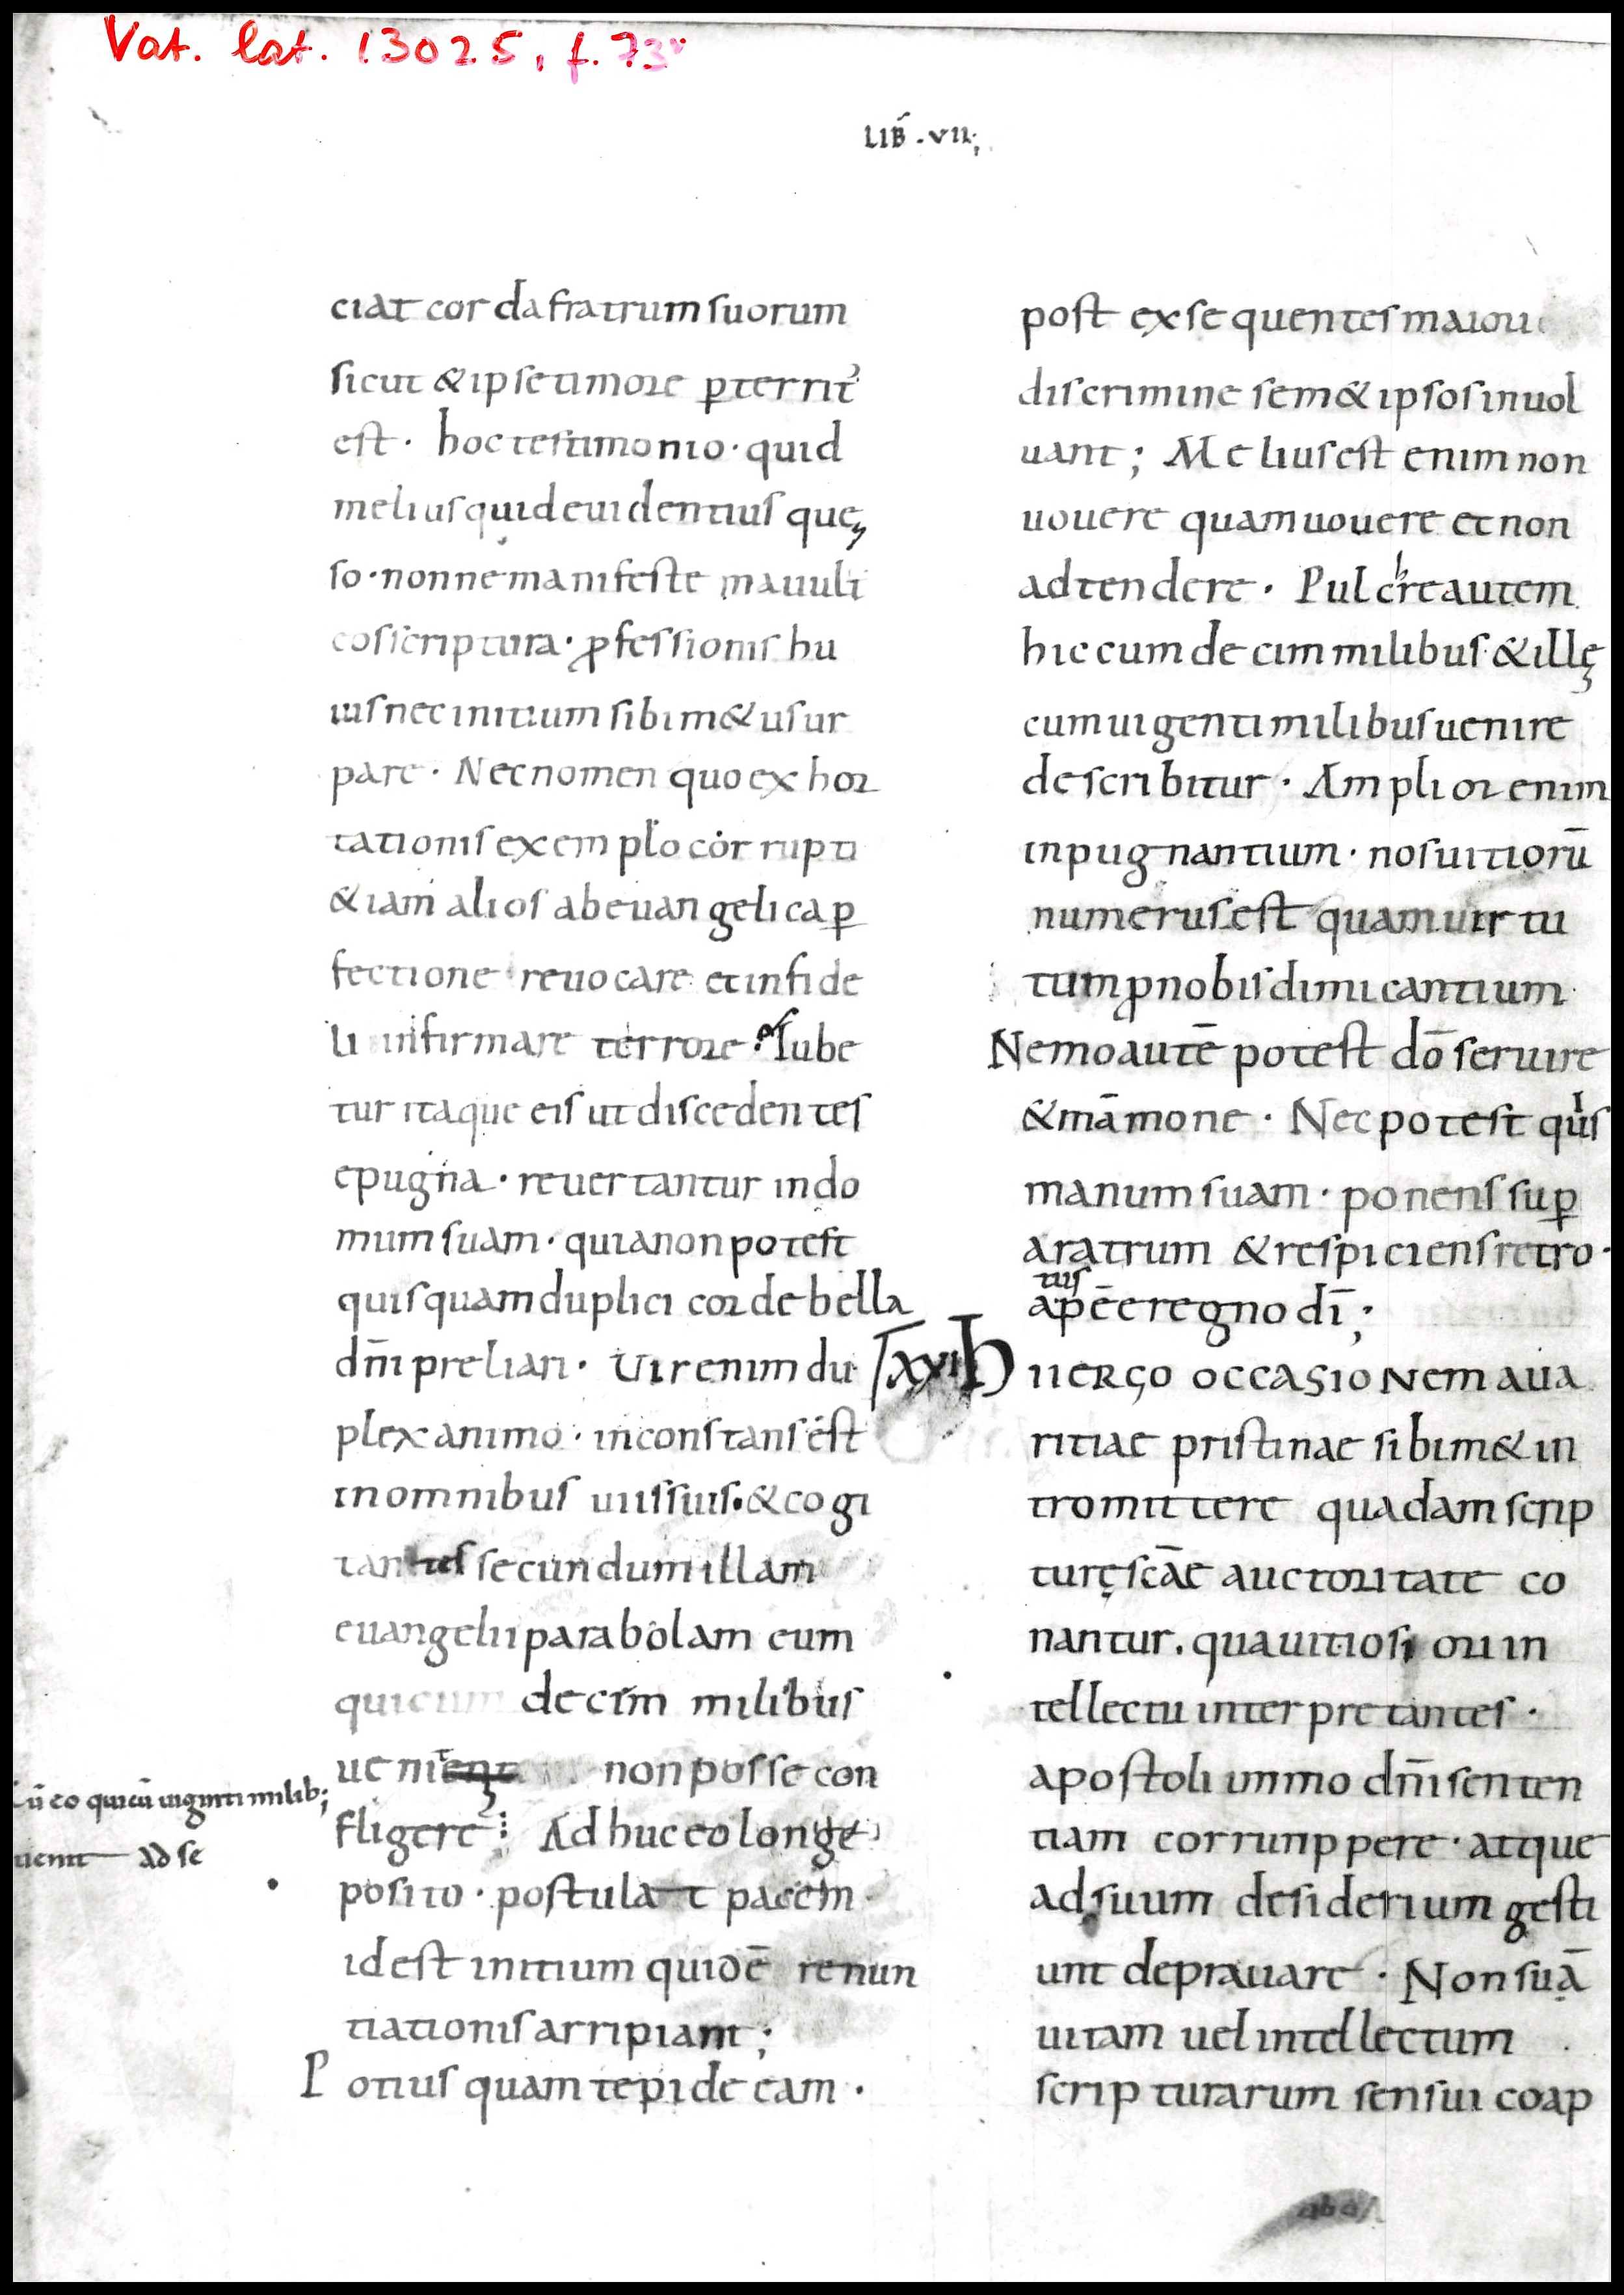 Vat. lat. 13025, f. 73v
LIB̄ . VII;
ciat corda fratrum suorum
sicut & ipse timore ꝑterrit᾿
est · hoc testimonio · quid
melius quid euidentius quę
so · nonne manifeste mauult
eos scriptura · ꝓfessionis hu
ius nec initium sibim& usur
pare · Nec nomen quo exhor
tationis exemplo corrupti
& iam alios ab euangelica ꝑ
fectione · reuocare et infide
li infirmare terrore · Iube
tur itaque eis ut discedentes
e pugna · reuertantur in do
mum suam · quia non potest
quisquam duplici corde bella
dn̄i preliari · Uir enim du
plex animo · inconstans est
in omnibus uiis suis · & cogi
tantes secundum illam
euangelii parabolam eum
qui cum decim milibus
uenient non posse con
Cū eo qui cū uiginti milib;
fligere Ad huc eo longe
uenit Ad se
posito · postulat pacem ·
id est initium quidē renun
tiationis arripiant ;
Potius quam tepide eam ·
post exsequentes maiori
discrimine sem& ipsos inuol
uant ; Melius est enim non
uouere quam uouere et non
adtendere · Pulchre autem
hic cum decim milibus & illę
cum uigenti milibus uenire
describitur · Amplior enim
inpugnantium · nos uitiorū
numerus est quam uirtu
tum ꝓ nobis dimicantium
Nemo autē potest dō seruire
& māmone · Nec potest quis
manum suam · ponens suꝑ
aratrum & respiciens retro ·
tus
ap ēe regno dī ;
XXII
Hii ergo occasionem aua
ritiae pristinae sibim& in
tromittere quadam scrip
turę scāe auctoritate co
nantur . qua uitiosiori in
tellectu interpretantes ·
apostoli immo dn̄i senten
tiam corrunppere · atque
ad suum desiderium gesti
unt deprauare · Non suā
uitam uel intellectum
scripturarum sensui coap